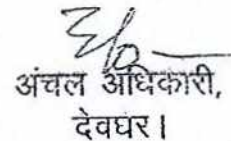 अंचल अधिकारी,
देवघर।